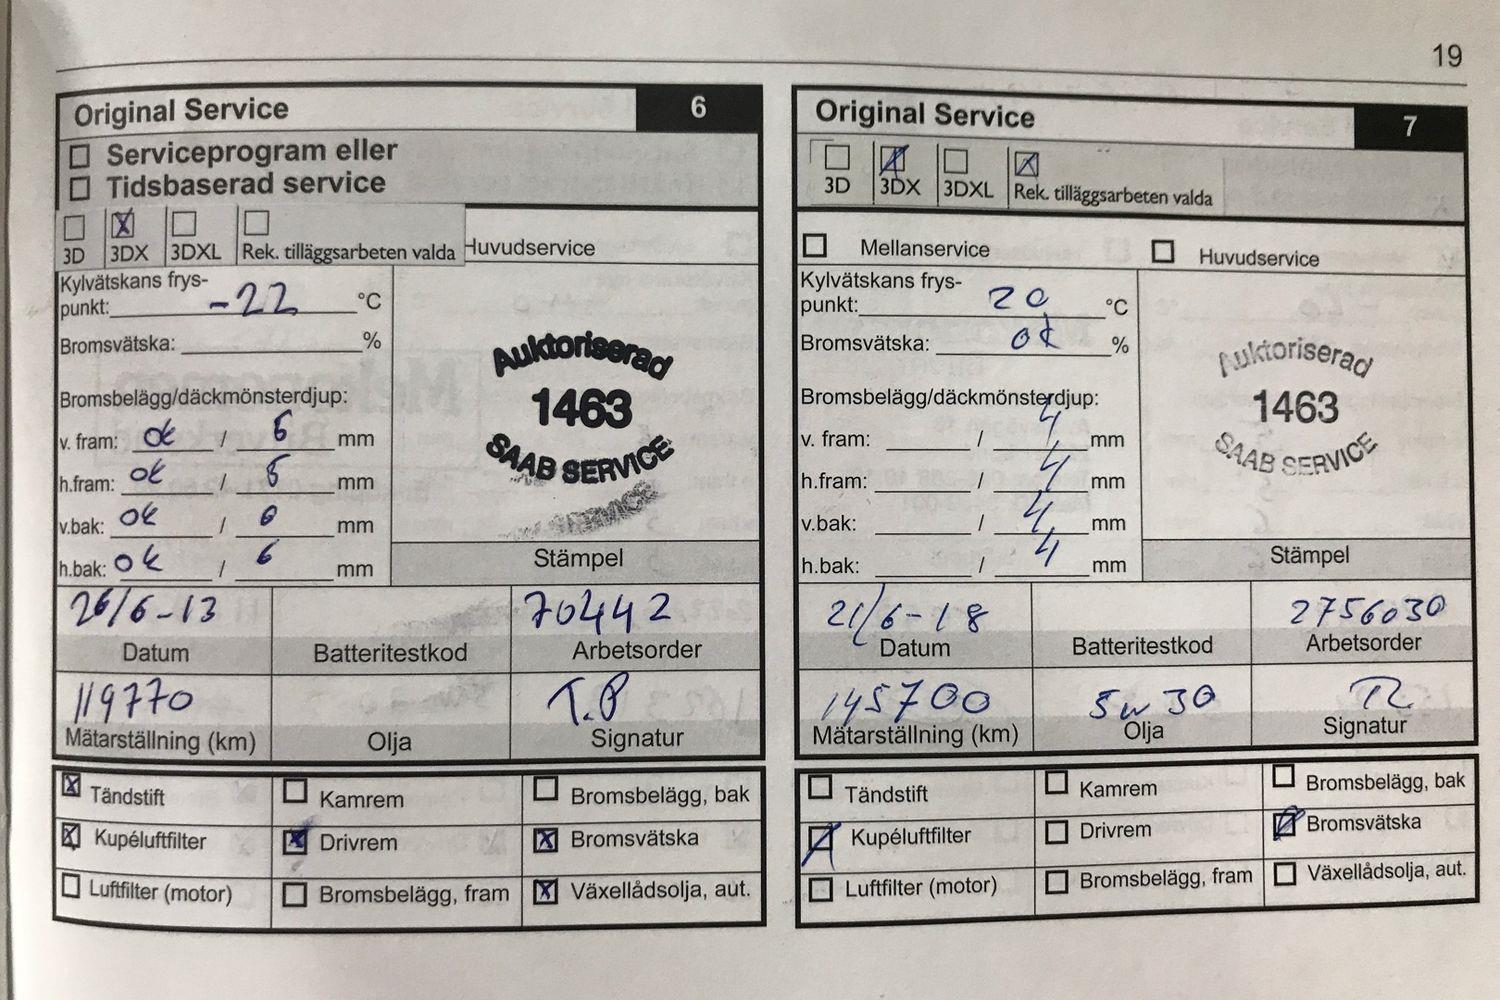 19
Original Service
6
Serviceprogram eller
Tidsbaserad service
3D
3DX
3DXL
Rek. tilläggsarbeten valda
Huvudservice
Kylvätskans frys-
punkt: -22 °C
Bromsvätska: %
Bromsbelägg/däckmönsterdjup:
v. fram: ok / 6 mm
h.fram: ok / 6 mm
v.bak: ok / 6 mm
h.bak: ok / 6 mm
Auktoriserad
1463
SAAB SERVICE
SERVICE
Stämpel
26/6-13
70442
Datum
Batteritestkod
Arbetsorder
119770
T.P
Mätarställning (km)
Olja
Signatur
Tändstift
Kamrem
Bromsbelägg, bak
Kupéluftfilter
Drivrem
Bromsvätska
Luftfilter (motor)
Bromsbelägg, fram
Växellådsolja, aut.
Original Service
7
3D
3DX
3DXL
Rek. tilläggsarbeten valda
Mellanservice
Huvudservice
Kylvätskans frys-
punkt: 20 °C
Bromsvätska: ok %
Bromsbelägg/däckmönsterdjup:
v. fram: / 4 mm
h.fram: / 4 mm
v.bak: / 4 mm
h.bak: / 4 mm
Auktoriserad
1463
SAAB SERVICE
Stämpel
21/6-18
2756030
Datum
Batteritestkod
Arbetsorder
145700
5w30
Mätarställning (km)
Olja
Signatur
Tändstift
Kamrem
Bromsbelägg, bak
Kupéluftfilter
Drivrem
Bromsvätska
Luftfilter (motor)
Bromsbelägg, fram
Växellådsolja, aut.